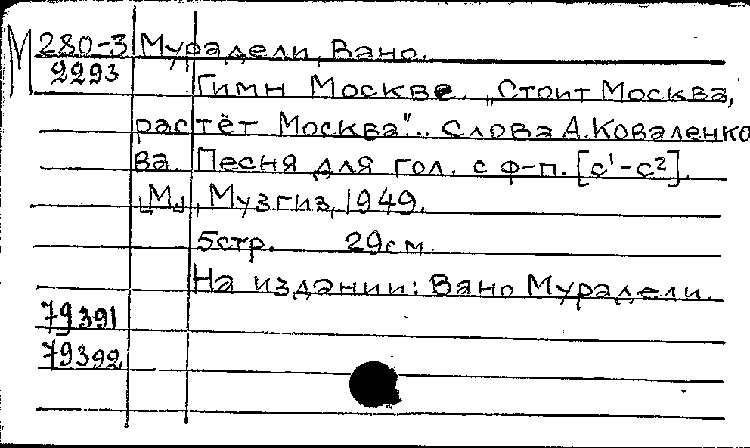 М 280-3 Мурадели, Вано.
2293
Гимн Москве. „Стоит Москва,
растёт Москва"... Слова А. Коваленко
ва. Песня для гол. с ф-п. [c¹-c²].
[М.], Музгиз, 1949.
5 стр. 29 см.
На издании: Вано Мурадели.
79391
79392